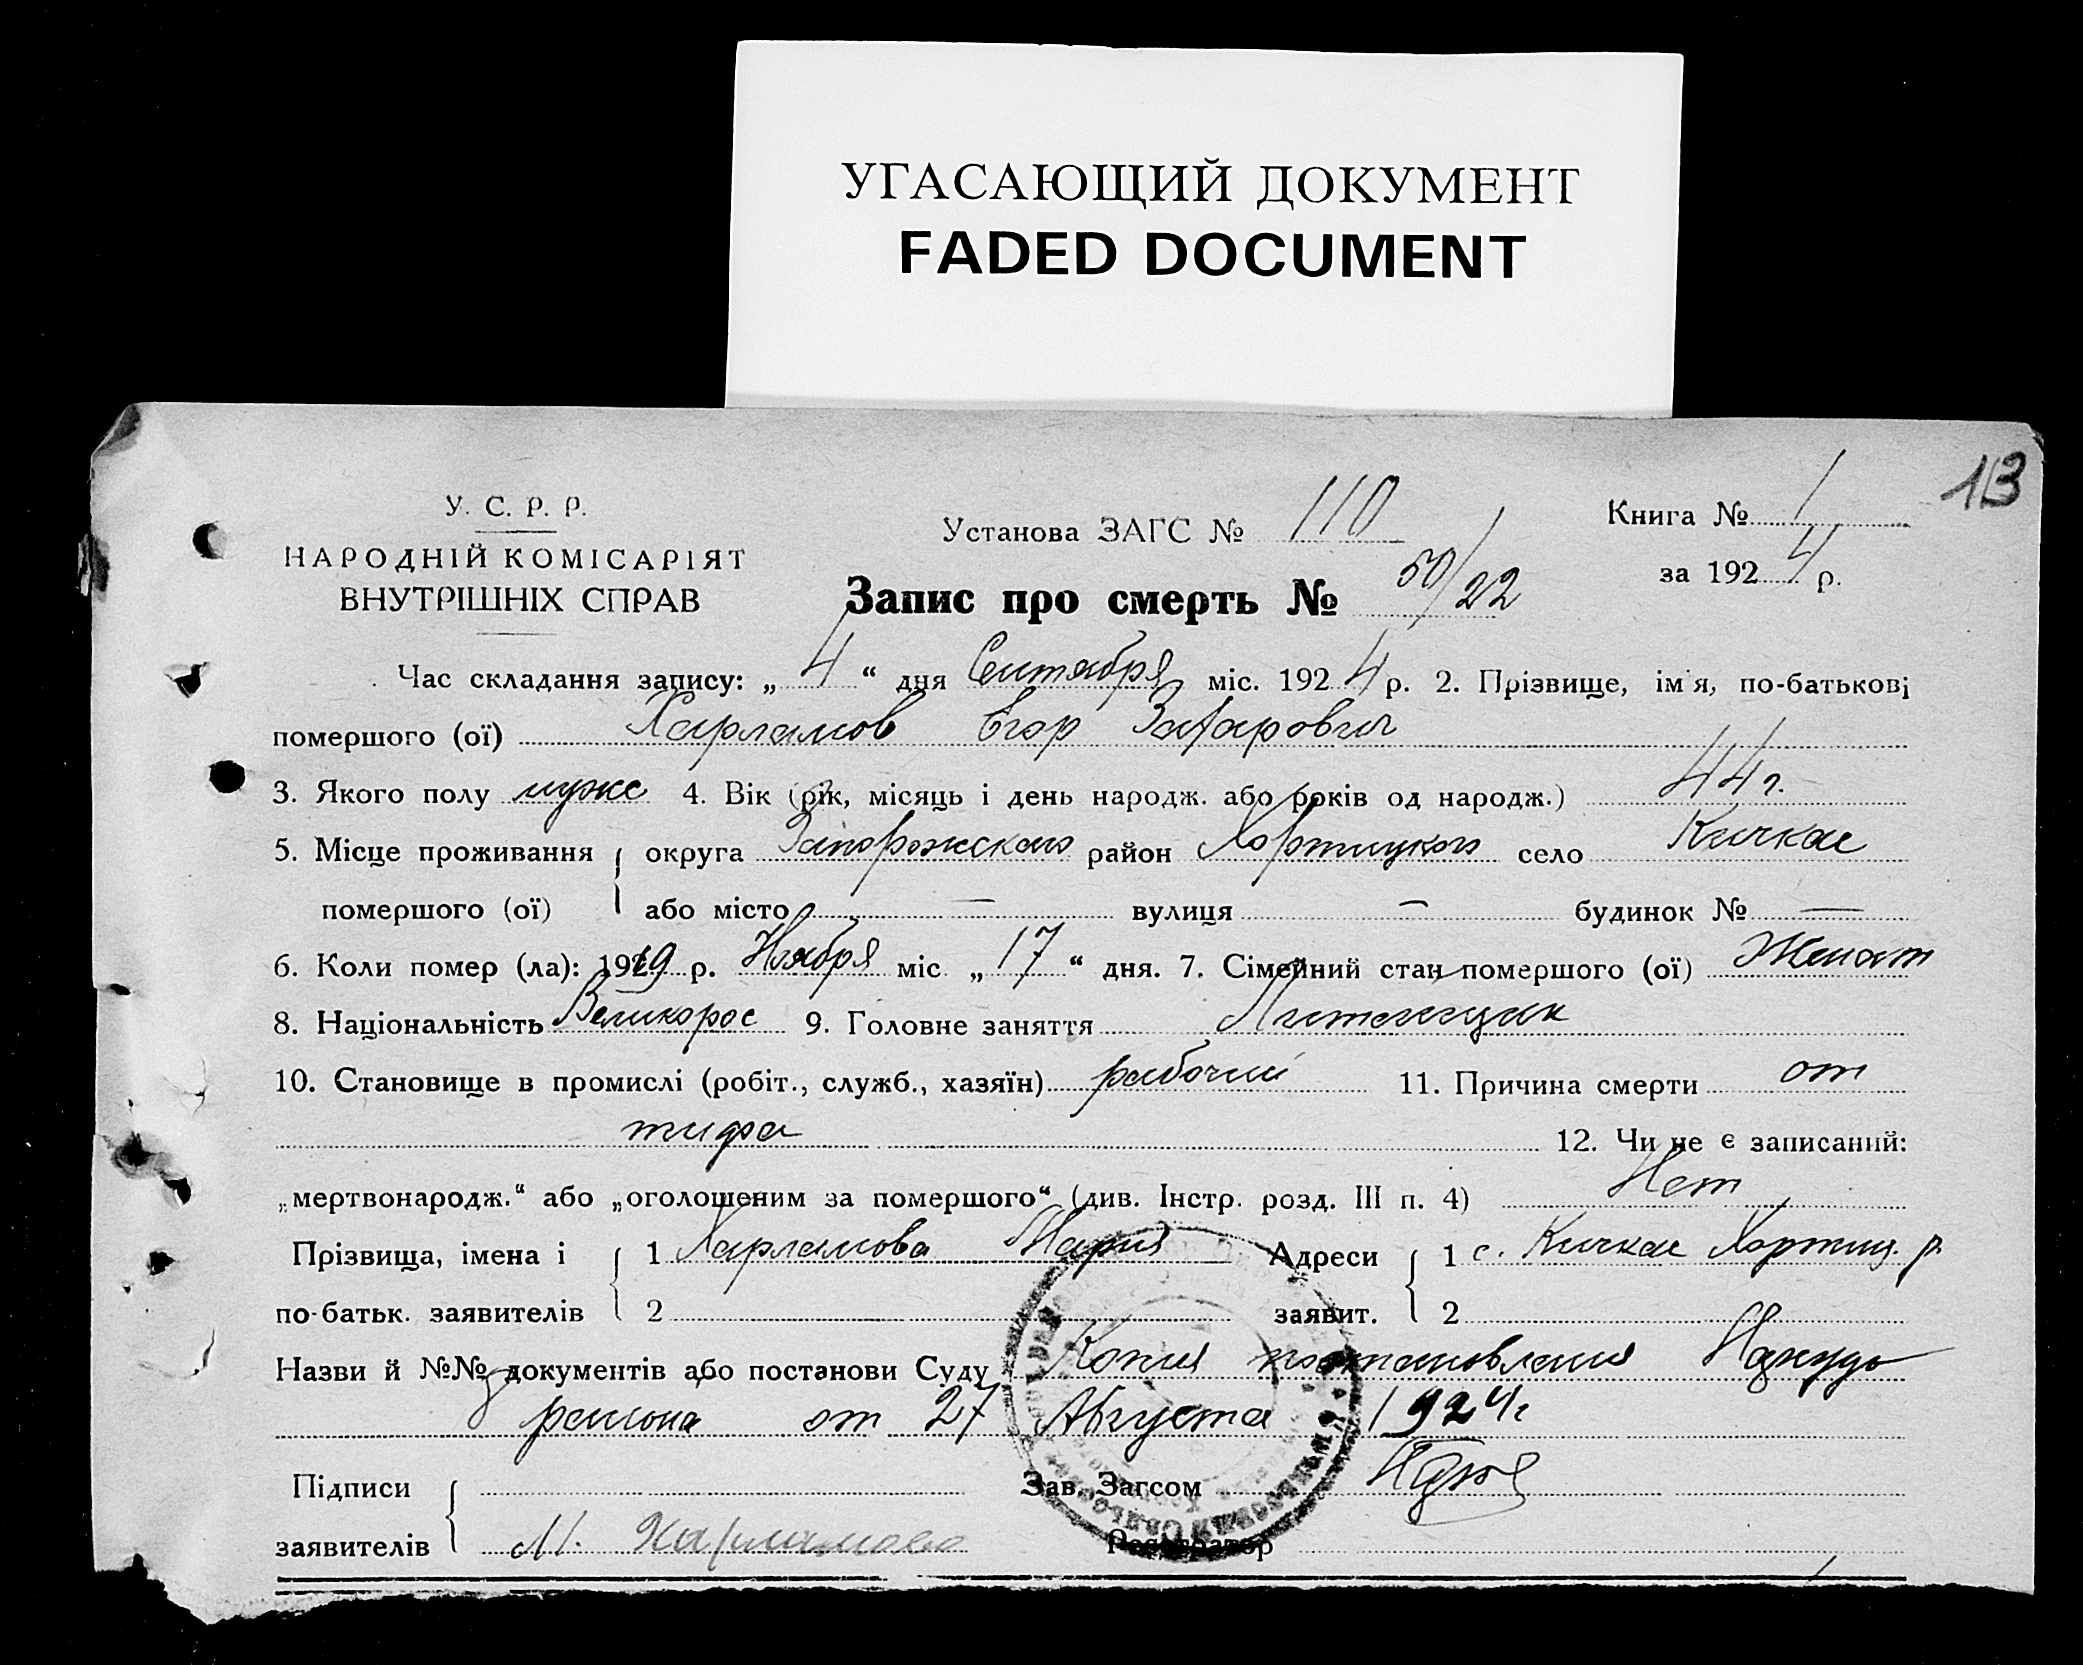 УГАСАЮЩИЙ ДОКУМЕНТ
FADED DOCUMENT
13
У. С. Р. Р.
НАРОДНІЙ КОМІСАРІЯТ
ВНУТРІШНІХ СПРАВ
Установа ЗАГС № 110
Книга № 1
за 1924 р.
Запис про смерть № 50/22
Час складання запису: „4“ дня Сентября міс. 1924 р. 2. Прізвище, ім'я, по-батькові
помершого (ої) Харламов Егор Захарович
3. Якого полу муже 4. Вік (рік, місяць і день народж. або років од народж.) 44 г.
5. Місце проживання округа Запорожского район Хортицкого село Кичкас
помершого (ої) або місто — вулиця — будинок № —
6. Коли помер (ла): 1919 р. Ноября міс. „17“ дня. 7. Сімейний стан помершого (ої) Женат
8. Національність Великорос 9. Головне заняття Литейщик
10. Становище в промислі (робіт., служб., хазяїн) рабочий 11. Причина смерти от
тифа 12. Чи не є записаний:
„мертвонародж.“ або „оголошеним за помершого“ (див. Інстр. розд. III п. 4) Нет
Прізвища, імена і 1 Харламова Мария Адреси 1 с. Кичкас Хортиц. р.
по-батьк. заявителів 2 заявит. 2
Назви й №№ документів або постанови Суду Копия постановления Нарсуда
района от 27 Августа 1924 г
Підписи Зав. Загсом
заявителів М. Харламова Реєстратор